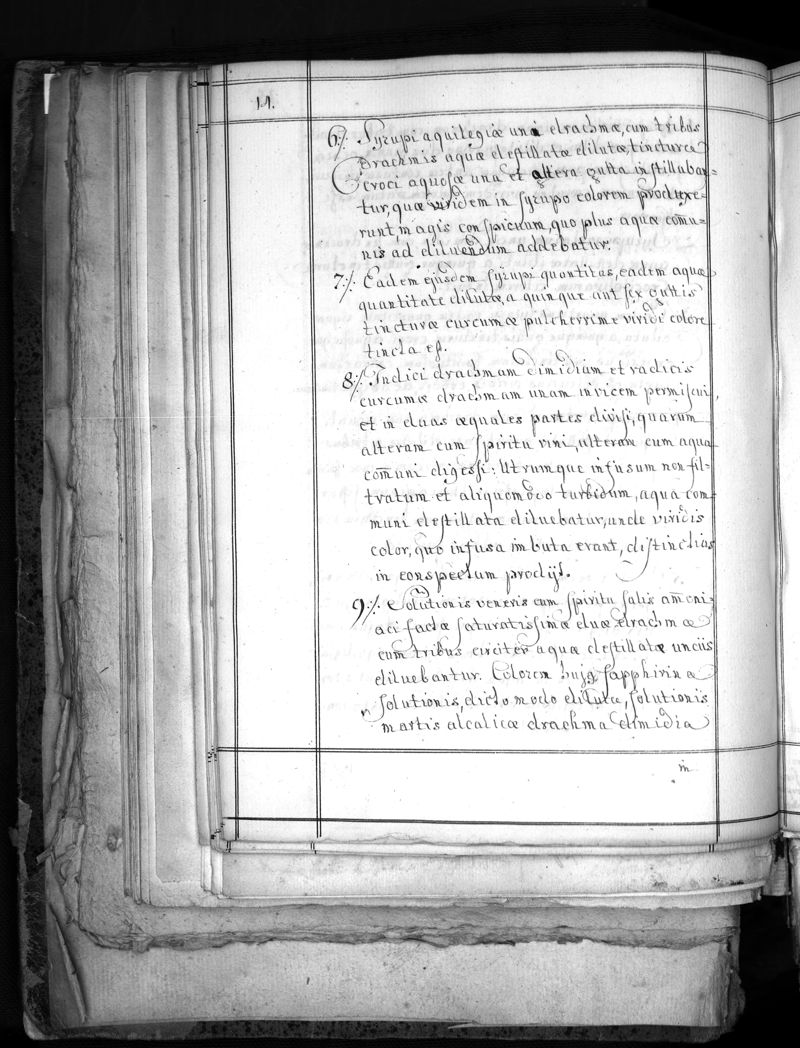 14.
6:/. Syrupi aquilegiæ uni drachmæ, cum tribus
drachmis aquæ destillatæ dilutæ, tincturæ
croci aquosæ una et altera gutta instillaban=
tur, quæ viridem in syrupo colorem produxe=
runt, magis conspicuum, quo plus aquæ com̄u=
nis ad diluendum addebatur.
7:/. Eadem ejusdem syrupi quantitas, eadem aquæ
quantitate dilutæ, a quinque aut sex guttis
tincturæ curcumæ pulcherrime viridi colore
tincta est.
8:/. Indici drachmam dimidiam et radicis
curcumæ drachmam unam invicem permiscui,
et in duas æquales partes divisi, quarum
alteram cum spiritu vini, alteram cum aqua
com̄uni digessi: Utrumque infusum non fil=
tratum et aliquomodo turbidum, aqua com=
muni destillata diluebatur, unde viridis
color, quo infusa imbuta erant, distinctius
in conspectum prodijt.
9:/. Solutionis veneris cum spiritu salis am̄oni=
aci factæ saturatissimæ duæ drachmæ
cum tribus circiter aquæ destillatæ unciis
diluebantur. Colorem hujg sapphirinæ
solutionis, dicto modo dilutæ, solutionis
martis alcalicæ drachma dimidia
in